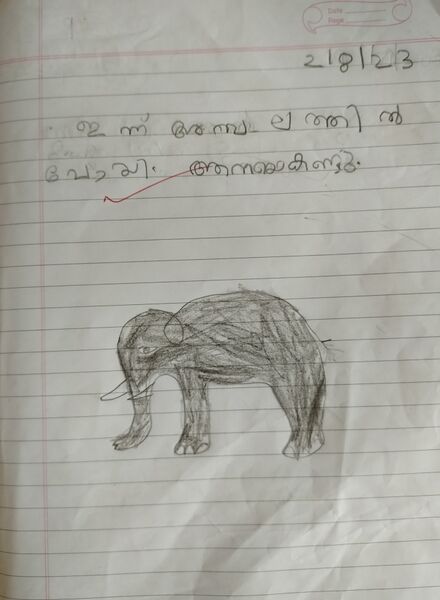 Date
Page
2/8/23
ഇന്ന് അമ്പലത്തിൽ
പോയി. ആനയെകണ്ടു.